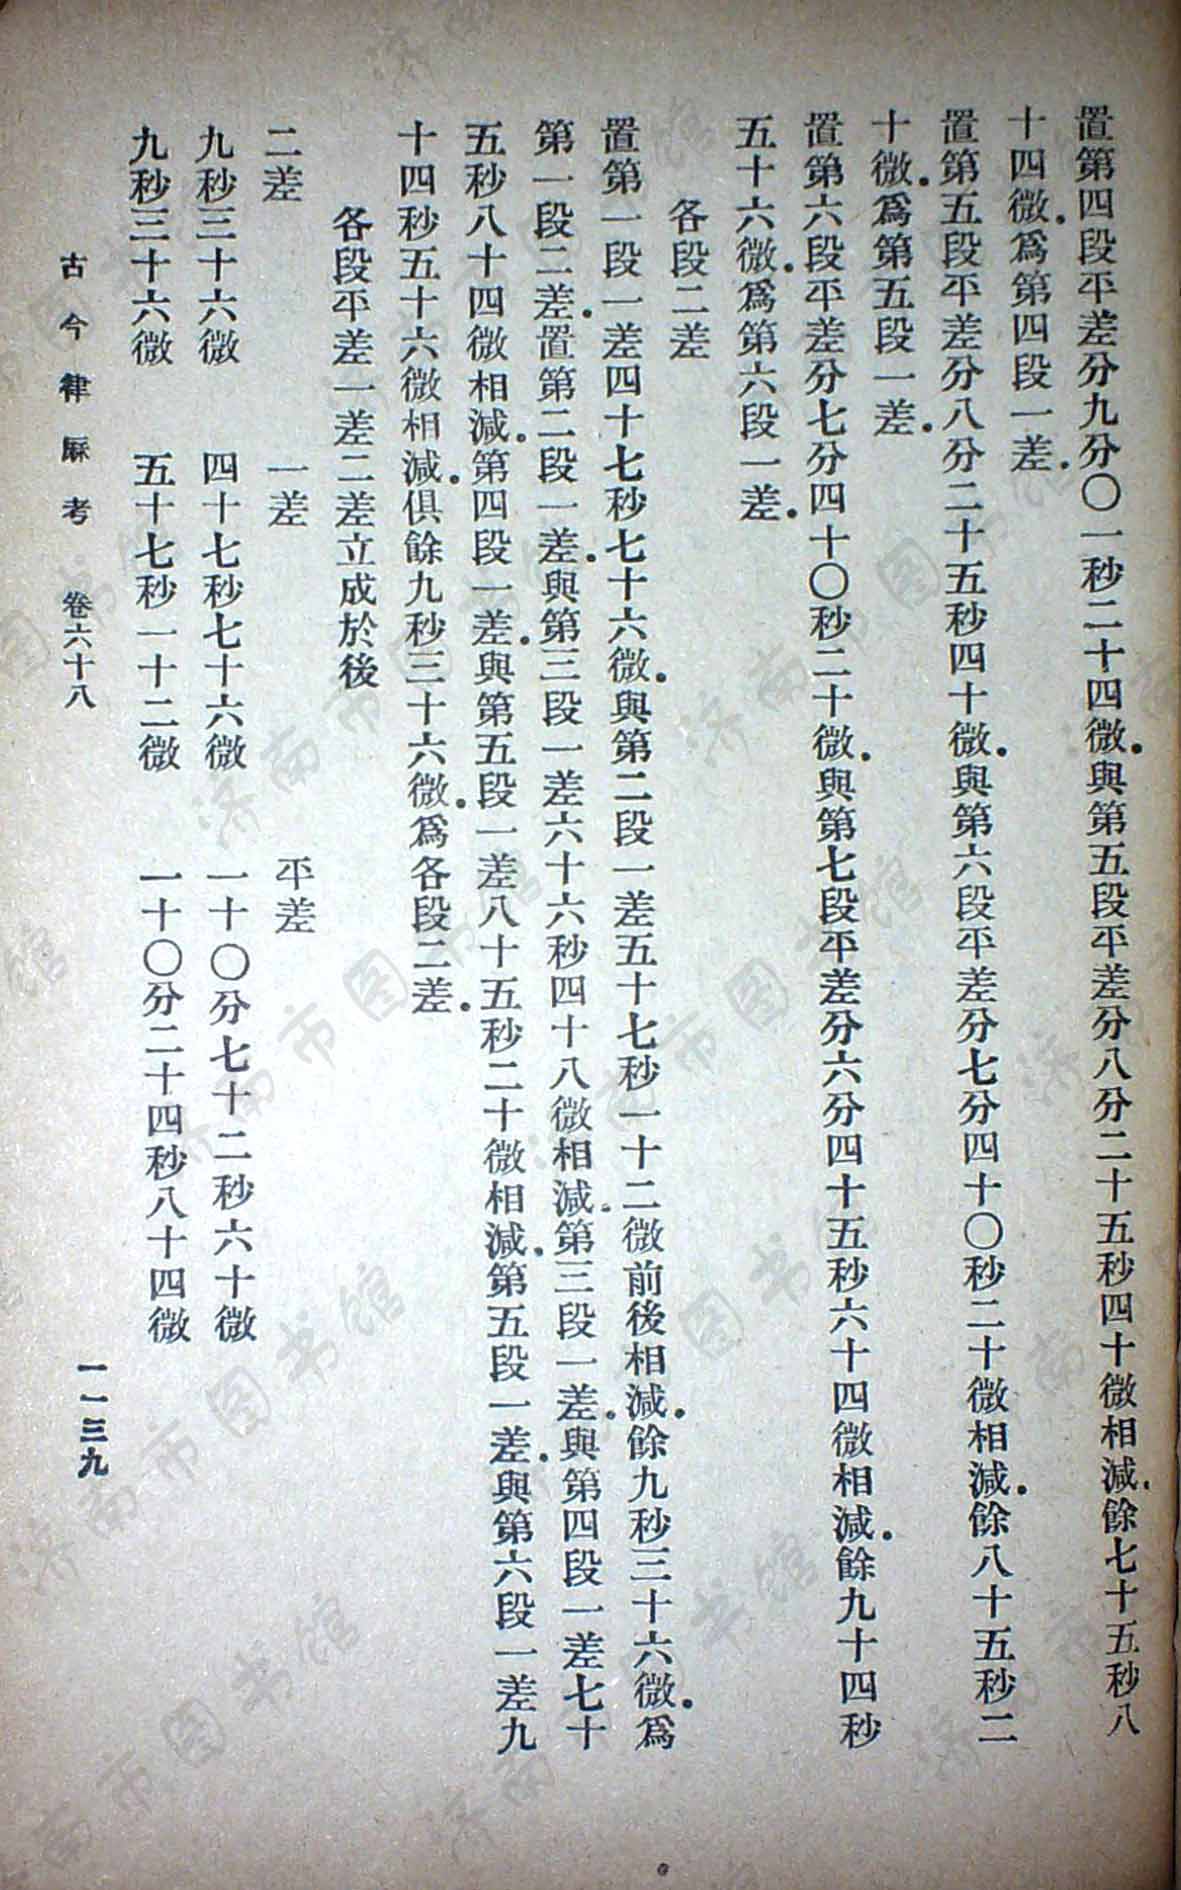 置第四段平差分九分〇一秒二十四微.與第五段平差分八分二十五秒四十微相減.餘七十五秒八
十四微.爲第四段一差.
置第五段平差分八分二十五秒四十微.與第六段平差分七分四十〇秒二十微相減.餘八十五秒二
十微.爲第五段一差.
置第六段平差分七分四十〇秒二十微.與第七段平差分六分四十五秒六十四微相減.餘九十四秒
五十六微.爲第六段一差.
各段二差
置第一段一差四十七秒七十六微.與第二段一差五十七秒一十二微前後相減.餘九秒三十六微.爲
第一段二差.置第二段一差.與第三段一差六十六秒四十八微相減.第三段一差.與第四段一差七十
五秒八十四微相減.第四段一差.與第五段一差八十五秒二十微相減.第五段一差.與第六段一差九
十四秒五十六微相減.俱餘九秒三十六微.爲各段二差.
各段平差一差二差立成於後
二差 一差 平差
九秒三十六微 四十七秒七十六微 一十〇分七十二秒六十微
九秒三十六微 五十七秒一十二微 一十〇分二十四秒八十四微
古今律厤考 卷六十八 一一三九
济南市图书馆